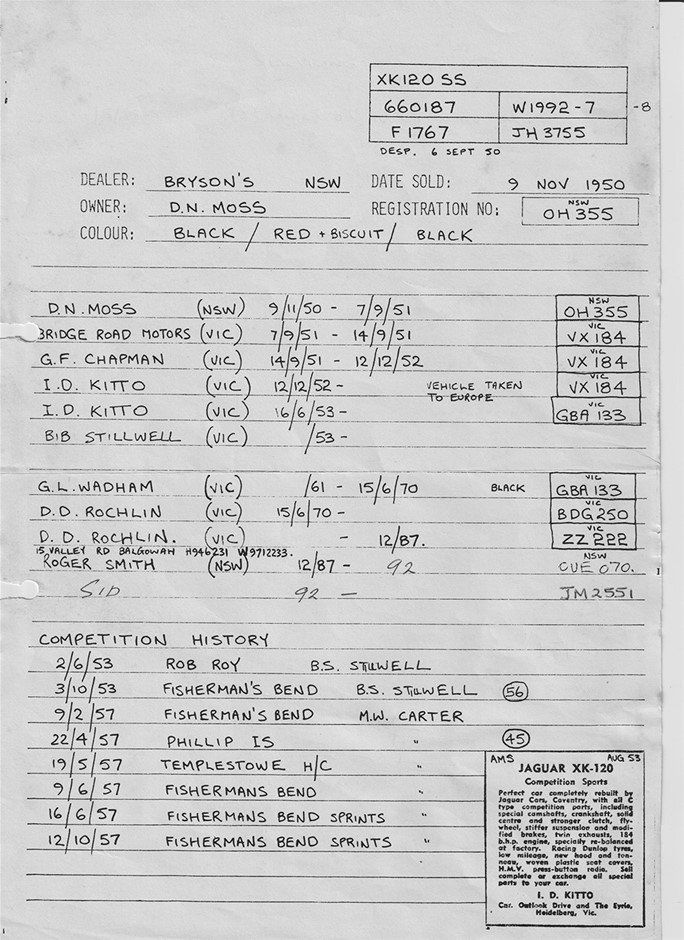 XK120 SS
660187 W1992-7 -8
F1767 JH 3755
DESP. 6 SEPT 50
DEALER: BRYSON'S NSW DATE SOLD: 9 NOV 1950
OWNER: D.N. MOSS REGISTRATION NO: NSW OH 355
COLOUR: BLACK / RED + BISCUIT / BLACK
D.N. MOSS (NSW) 9/11/50 - 7/9/51 NSW OH 355
BRIDGE ROAD MOTORS (VIC) 7/9/51 - 14/9/51 VIC VX 184
G.F. CHAPMAN (VIC) 14/9/51 - 12/12/52 VIC VX 184
I.D. KITTO (VIC) 12/12/52 - VEHICLE TAKEN TO EUROPE VIC VX 184
I.D. KITTO (VIC) 16/6/53 - VIC GBA 133
BIB STILLWELL (VIC) /53 -
G.L. WADHAM (VIC) /61 - 15/6/70 BLACK VIC GBA 133
D.D. ROCHLIN (VIC) 15/6/70 - VIC BDG 250
D.D. ROCHLIN. (VIC) - 12/87. VIC ZZ 222
15 VALLEY RD BALGOWAH H946231 W9712233.
ROGER SMITH (NSW) 12/87 - 92 NSW CUE 070.
SID 92 - JM 2551
COMPETITION HISTORY
2/6/53 ROB ROY B.S. STILLWELL
3/10/53 FISHERMAN'S BEND B.S. STILLWELL 56
9/2/57 FISHERMAN'S BEND M.W. CARTER
22/4/57 PHILLIP IS " 45
19/5/57 TEMPLESTOWE H/C "
9/6/57 FISHERMANS BEND "
16/6/57 FISHERMANS BEND SPRINTS "
12/10/57 FISHERMANS BEND SPRINTS "
AMS AUG 53
JAGUAR XK-120
Competition Sports
Perfect car completely rebuilt by
Jaguar Cars, Coventry, with all C
type competition parts, including
special camshafts, crankshaft, solid
centre and stronger clutch, fly-
wheel, stiffer suspension and modi-
fied brakes, twin exhausts, 184
b.h.p. engine, specially re-balanced
at factory. Racing Dunlop tyres,
low mileage, new hood and ton-
neau, woven plastic seat covers,
H.M.V. press-button radio. Sell
complete or exchange all special
parts to your car.
I. D. KITTO
Cnr. Outlook Drive and The Eyrie,
Heidelberg, Vic.